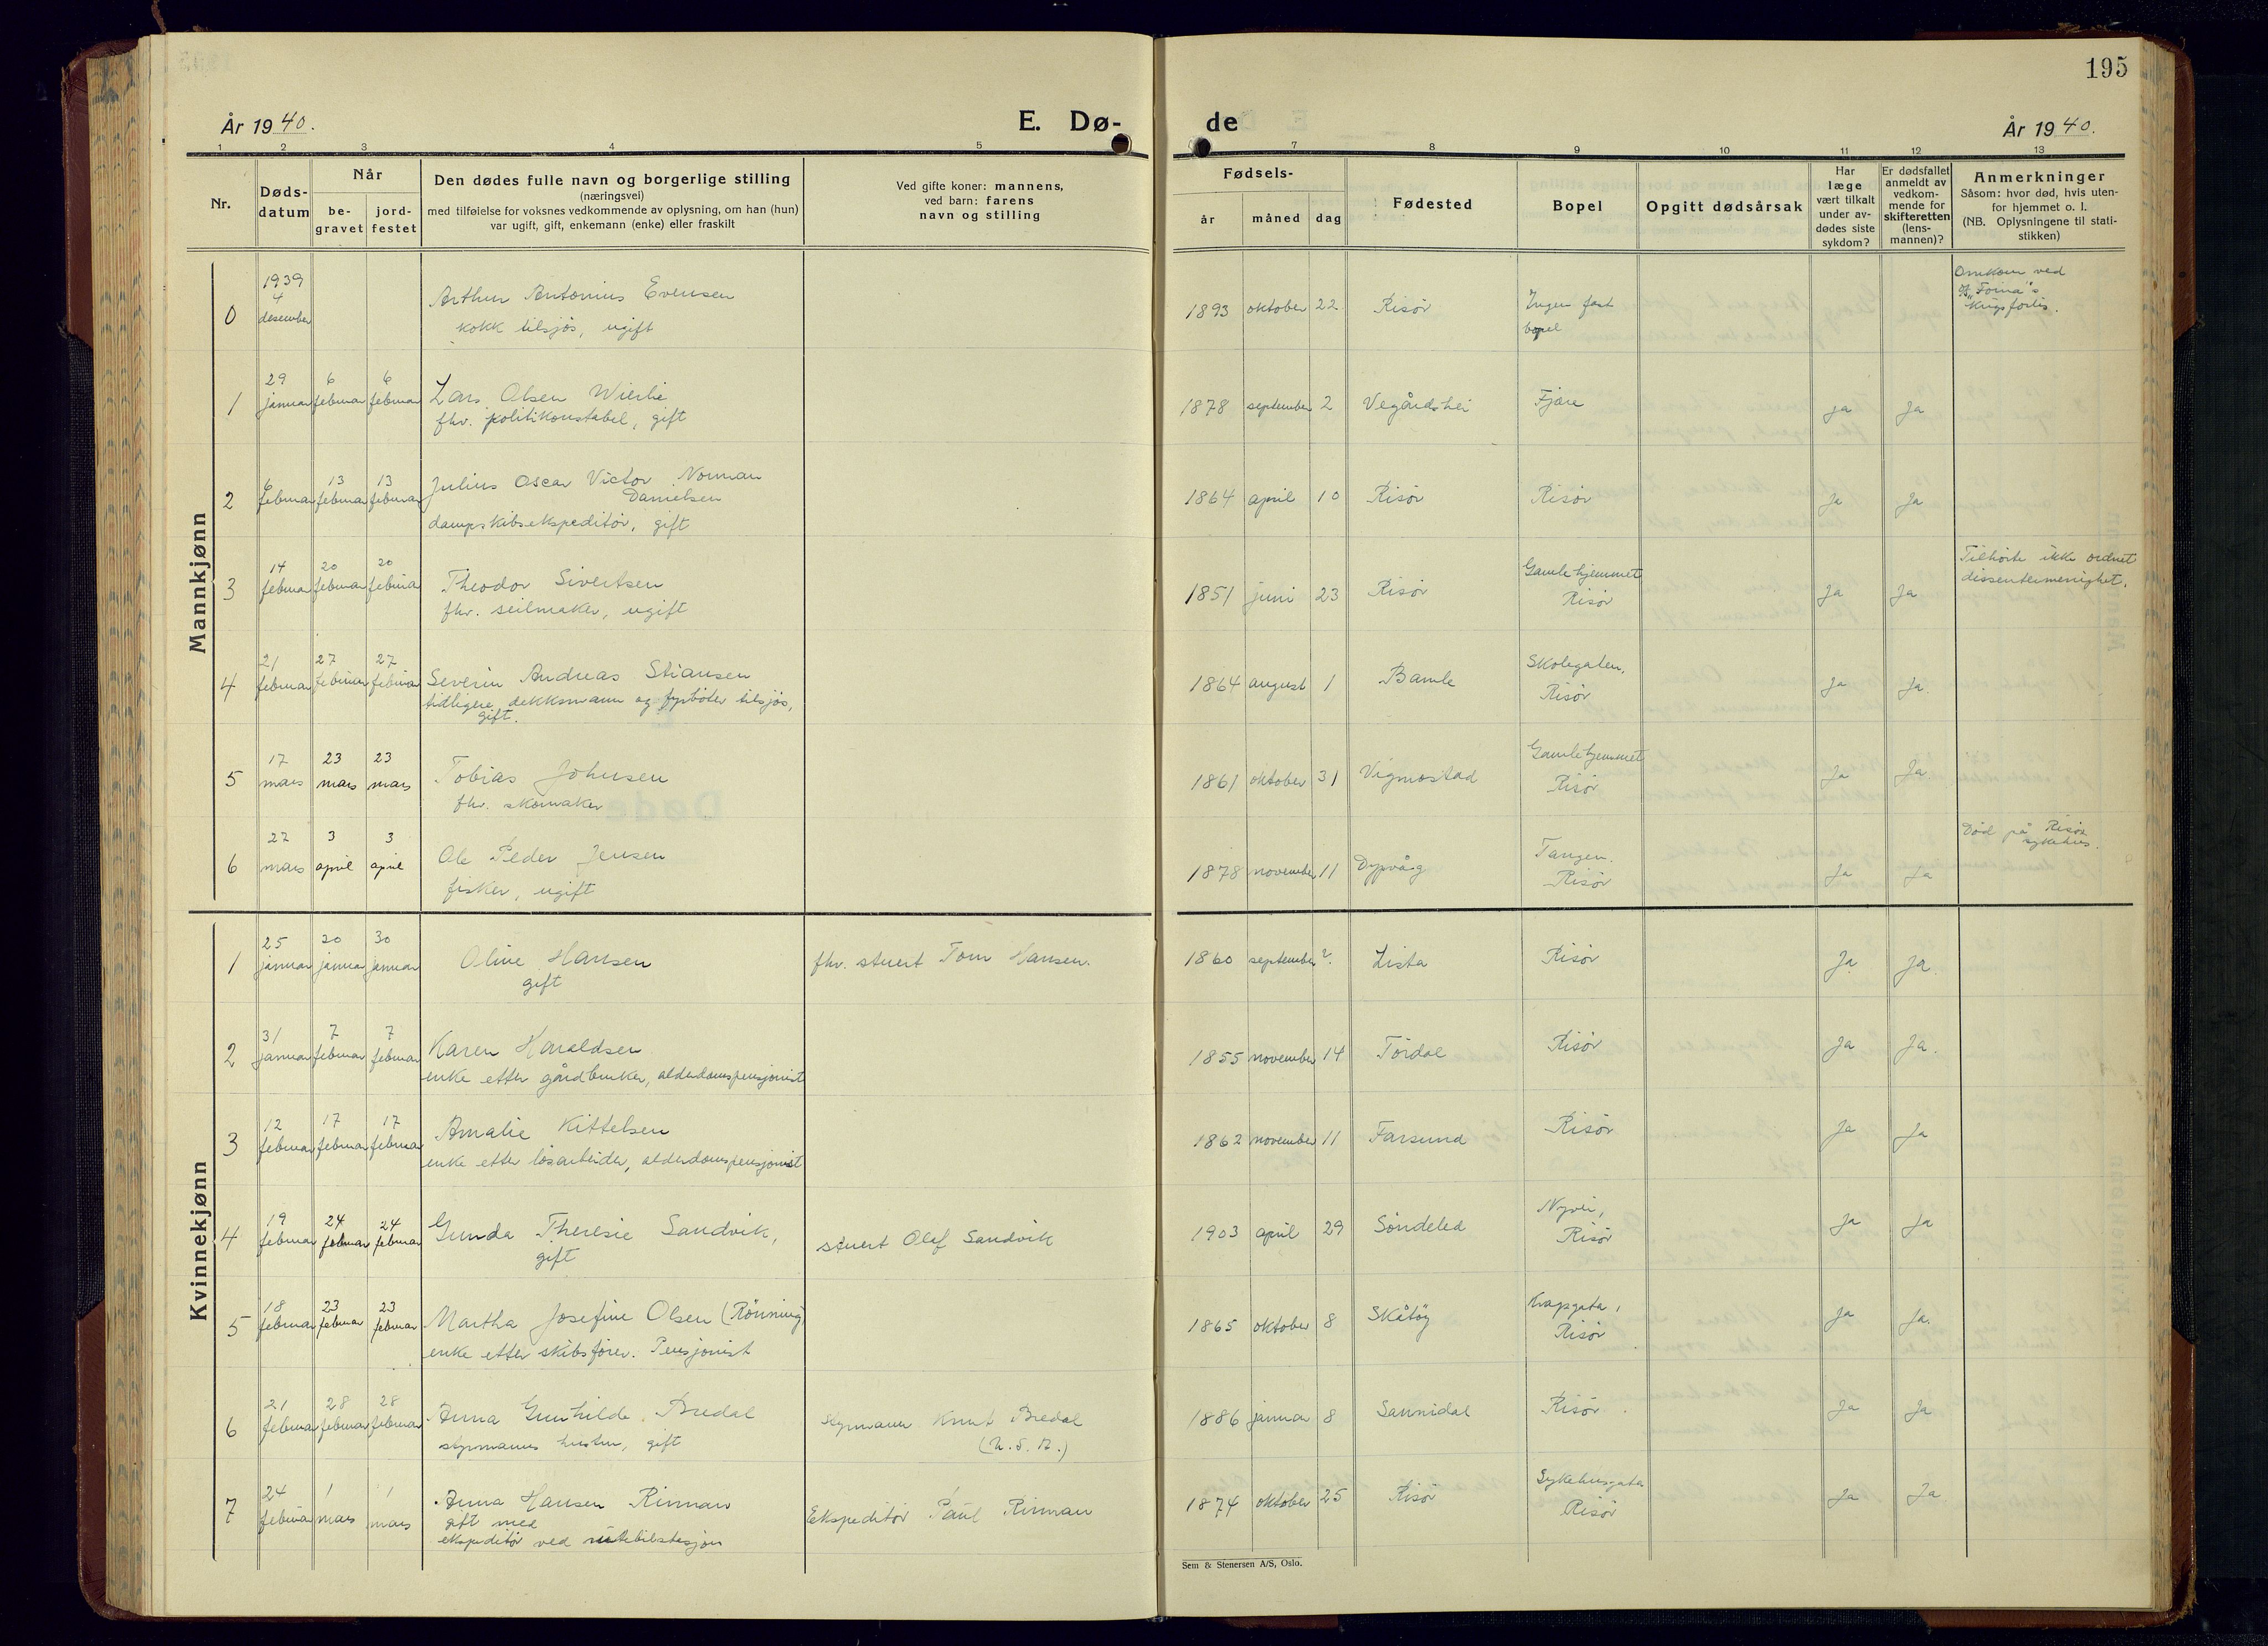 195
År 1940.
E. Dø-
de
År 1940.
1 2 3 4 5
7 8 9 10 11 12 13
Nr.
Døds-
datum
Når
be-
gravet
jord-
festet
Den dødes fulle navn og borgerlige stilling
(næringsvei)
med tilføielse for voksnes vedkommende av oplysning, om han (hun)
var ugift, gift, enkemann (enke) eller fraskilt
Ved gifte koner: mannens,
ved barn: farens
navn og stilling
Fødsels-
år
måned
dag
Fødested
Bopel
Opgitt dødsårsak
Har
læge
vært tilkalt
under av-
dødes siste
sykdom?
Er dødsfallet
anmeldt av
vedkom-
mende for
skifteretten
(lens-
mannen)?
Anmerkninger
Såsom: hvor død, hvis uten-
for hjemmet o. l.
(NB. Oplysningene til stati-
stikken)
Mannkjønn
0
1939
4
desember
Arthur Antonius Evensen
kokk tilsjøs, ugift
1893 oktober 22 Risør
Ingen fast
bopel
Omkom ved
"Foina"s
krigsforlis.
1
29 6 6
januar februar februar
Lars Olsen Wierli
fhv. politikonstabel, gift
1878 september 2 Vegårdshei Fjære ja Ja
2
6 13 13
februar februar februar
Julius Oscar Victor Norman
Danielsen
dampskibsekspeditør, gift
1864 april 10 Risør Risør Ja Ja
3
14 20 20
februar februar februar
Theodor Sivertsen
fhv. seilmaker, ugift
1851 juni 23 Risør
Gamlehjemmet
Risør
Ja Ja
Tilhørte ikke ordnet
dissentermenighet.
4
21 27 27
februar februar februar
Severin Andreas Stiansen
tidligere dekksmann og fyrbøter tilsjøs,
gift.
1864 august 1 Bamle
Skolegaten,
Risør
Ja Ja.
5
17 23 23
mars mars mars
Tobias Johnsen
fhv. skomaker
1861 oktober 31 Vigmostad
Gamlehjemmet
Risør
Ja Ja
6
27 3 3
mars april april
Ole Peder Jensen
fisker, ugift
1878 november 11 Dypvåg
Tangen.
Risør
Ja Ja
Død på Risør
sykehus.
Kvinnekjønn
1
25 30 30
januar januar januar
Oline Hansen
gift
fhv. stuert Tom Hansen.
1860 september ?. Lista Risør Ja Ja.
2
31 7 7
januar februar februar
Karen Haraldsen
enke etter gårdbruker, alderdomspensjonist
1855 november 14 Tördal Risør Ja Ja.
3
12 17 17
februar februar februar
Amalie Kittelsen
enke etter løsarbeider, alderdomspensjonist
1862 november 11 Farsund Risør Ja Ja
4
19 24 24
februar februar februar
Gunda Theresie Sandvik,
gift
stuert Olaf Sandvik
1903 april 29 Søndeled
Nyvei,
Risør
Ja Ja
5
18 23 23
februar februar februar
Martha Josefine Olsen (Rönning)
enke etter skibsfører. Pensjonist
1865 oktober 8 Skåtøy
Kragsgata,
Risør
Ja Ja.
6
21 28 28
februar februar februar
Anna Gunhilde Bredal
styrmanns hustru, gift
styrmann Knut Bredal
(U.S.A.)
1886 januar 8 Sannidal Risør. Ja Ja
7
24 1 1
februar mars mars
Anna Hansen Rinman
gift med
ekspeditør ved rutebilstasjon
Ekspeditør Paul Rinman
1874 oktober 25 Risør
Sykehusgata
Risør
Ja Ja
Sem & Stenersen A/S, Oslo.